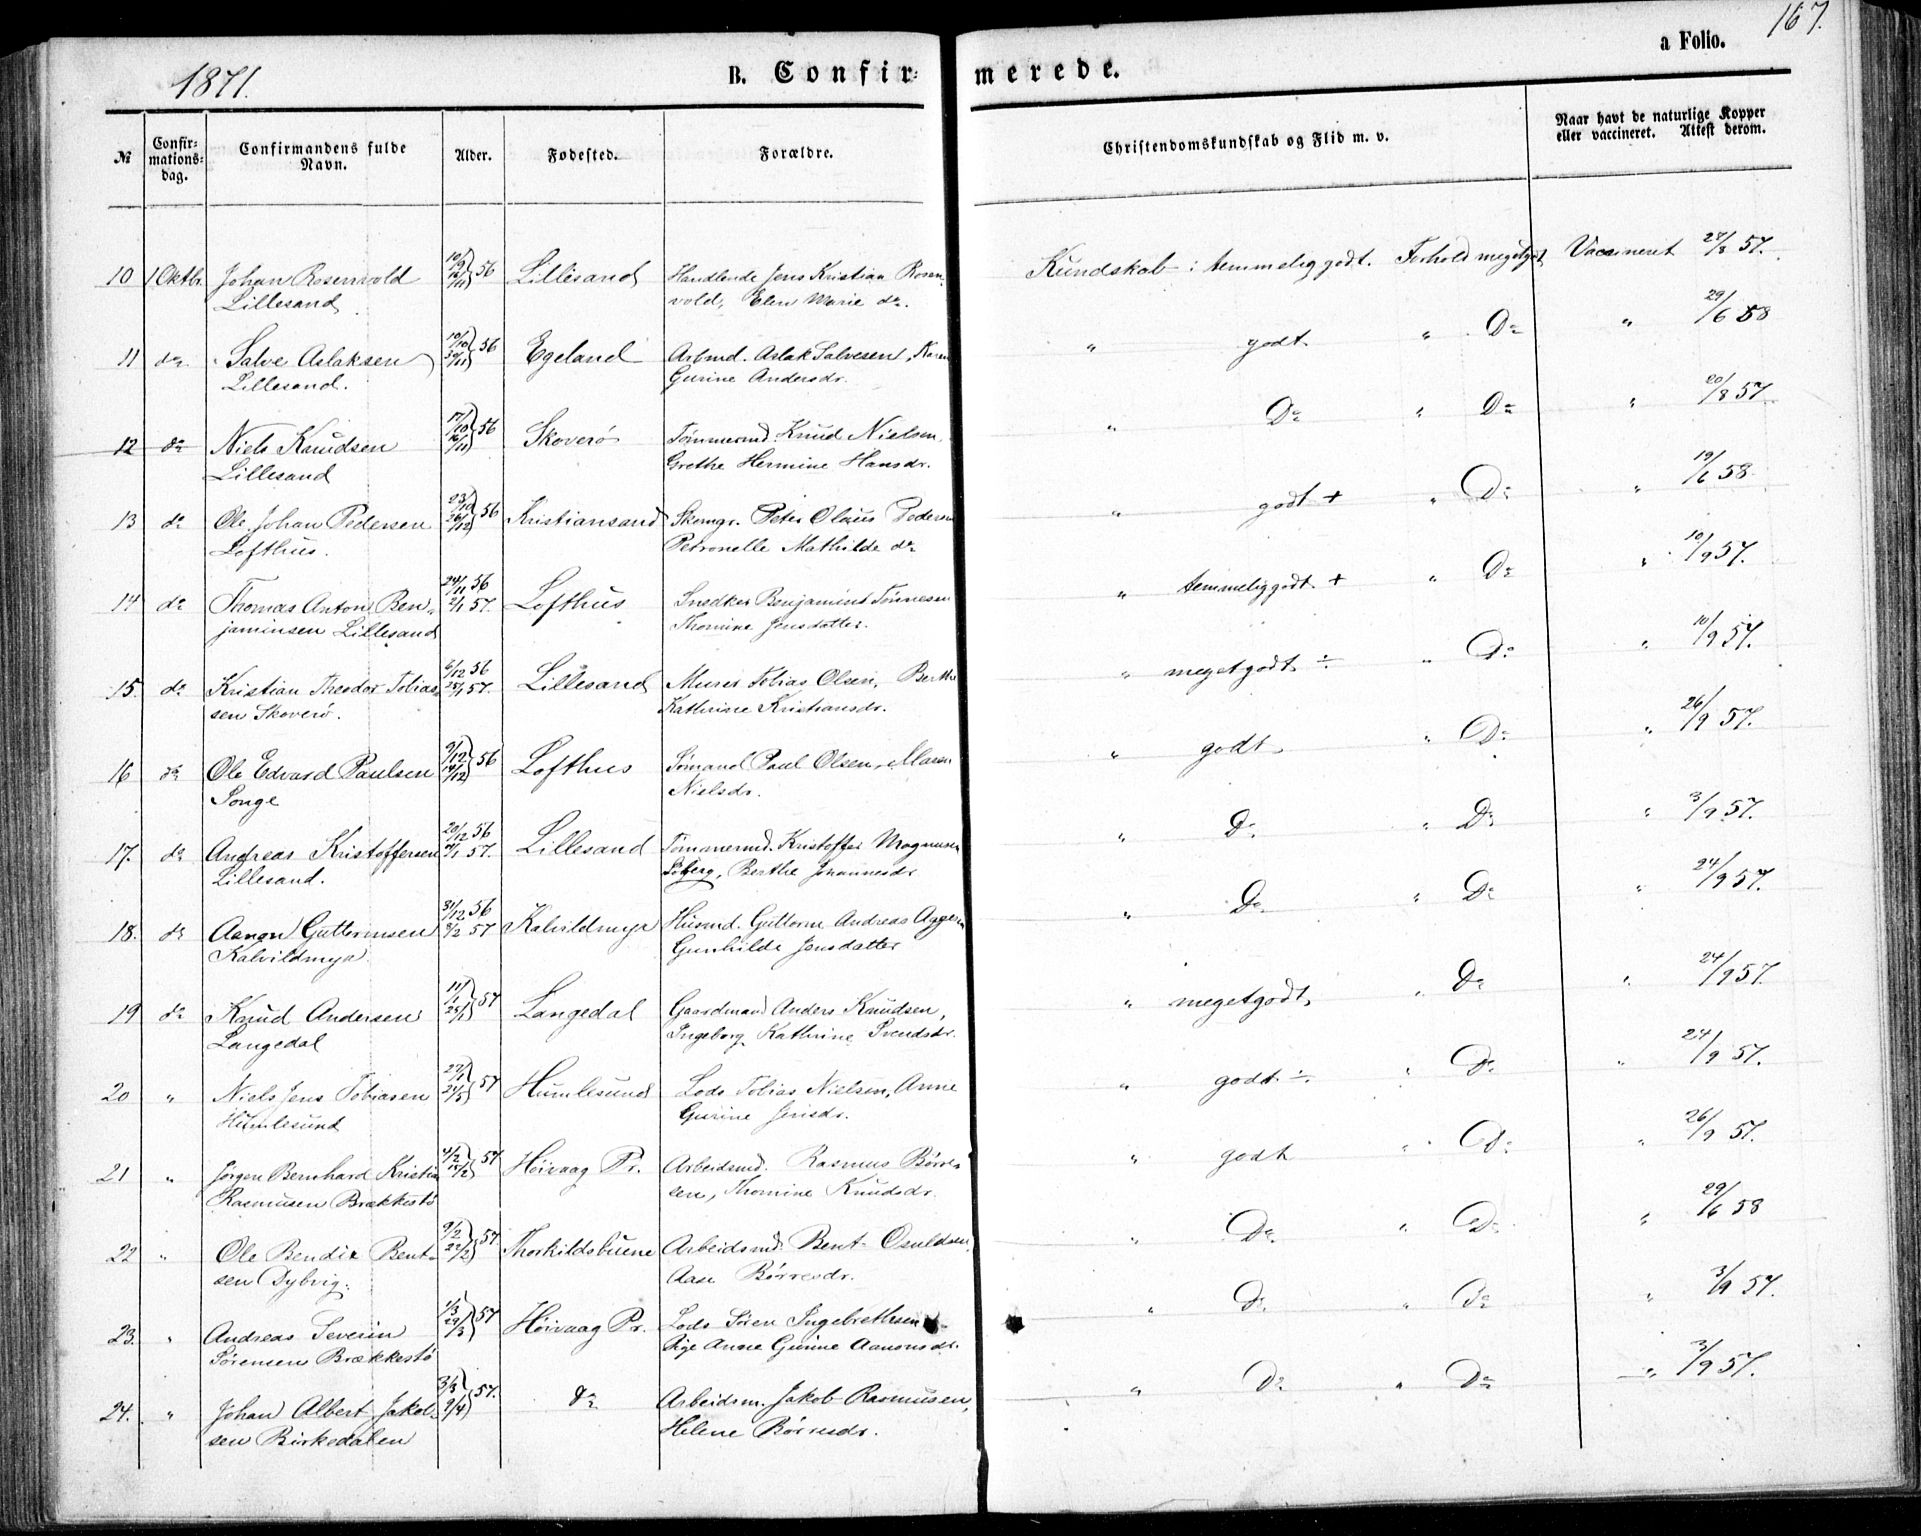 167.
a Folio.
1871.
B. Confirmerede.
№
Confirmationsdag.
Confirmandens fulde Navn.
Alder.
Fødested.
Forældre.
Christendomskundskab og Flid m. v.
Naar havt de naturlige Kopper eller vaccineret. Attest derom.
10 1 Oktbr. Johan Rosenvold 10/9 12/11 56 Lillesand Handlende Jens Kristian Rosen- Kundskab: temmelig godt. Forhold meget godt Vaccineret 27/8 57.
Lillesand vold, Elen Marie do.
11 do. Salve Aslaksen 10/10 30/11 56 Egeland Arbmd. Aslak Salvesen, Karen " godt " Do " 29/6 58
Lillesand. Gurine Andersdr.
12 do Niels Knudsen 17/10 16/11 56 Skoverø Tømmermd. Knud Nielsen, " Do " Do " 20/8 57
Lillesand Grethe Hermine Hansdr.
13 do Ole Johan Pedersen 23/10 26/12 56 Kristiansand Skomgr. Peter Olaus Pedersen " godt + " Do " 19/6 58
Lofthus. Petronelle Mathilde do
14 do Thomas Anton Ben- 24/11 56 2/1 57. Lofthus Snedker Benjamin Tønnesen " temmelig godt + " Do " 10/9 57.
jaminsen Lillesand Thomine Jensdatter.
15. do Kristian Theodor Tobias- 6/12 56 25/1 57. Lillesand Murer Tobias Olsen, Berthe " meget godt ÷ " Do " 10/9 57.
sen Skoverø. Kathrine Kristiansdr.
16 do Ole Edvard Paulsen 9/12 14/12 56 Lofthus Sømand Paul Olsen, Maren " godt " Do " 26/9 57.
Songe Nielsdr.
17. do Andreas Kristoffersen 20/12 56 4/1 57. Lillesand Tømmermd. Kristoffer Magnusen " Do " Do " 3/9 57.
Lillesand. Berthe Johannesdr
18. do Aanon Guttormsen 31/12 56 8/2 57 Kalvildmyr Husmd. Guttorm Andreas " Do " Do " 24/9 57.
Kalvildmyr Gunhilde Jensdatter
19 do Knud Andersen 11/1 25/1 57 Langedal Gaardmand Anders Knudsen, " meget godt " Do " 24/9 57.
Langedal Ingeborg Kathrine Svendsdr.
20 " Niels Jens Tobiasen 27/1 24/5 57 Humlesund Lods Tobias Nielsen, Anne " godt ÷ " Do " 24/9 57.
Humlesund Gurine Jensdr.
21 " Jørgen Bernhard Kristian 4/2 15/2 57 Høivaag Pr. Arbeidsmd. Rasmus Børre- " godt " Do " 26/9 57.
Rasmusen Brækkestø sen, Thomine Knudsdr.
22 " Ole Bendix Bent- 9/2 22/2 57 Thorkildsbuene Arbeidsmd. Bent Osuldsen, " Do " Do " 29/6 58
sen Dybvig. Aase Børresdr.
23. " Andreas Severin 1/3 29/3 57 Høivaag Pr. Lods Søren Ingebrethsen " Do " Do " 3/9 57.
Sørensen Brækkestø Anne Gurine Aanonsdr.
24. " Johan Albert Jakob- 3/3 9/4 57. do Arbeidsm. Jakob Rasmusen, " Do " Do " 3/9 57.
sen Birkedalen Helene Børresdr.